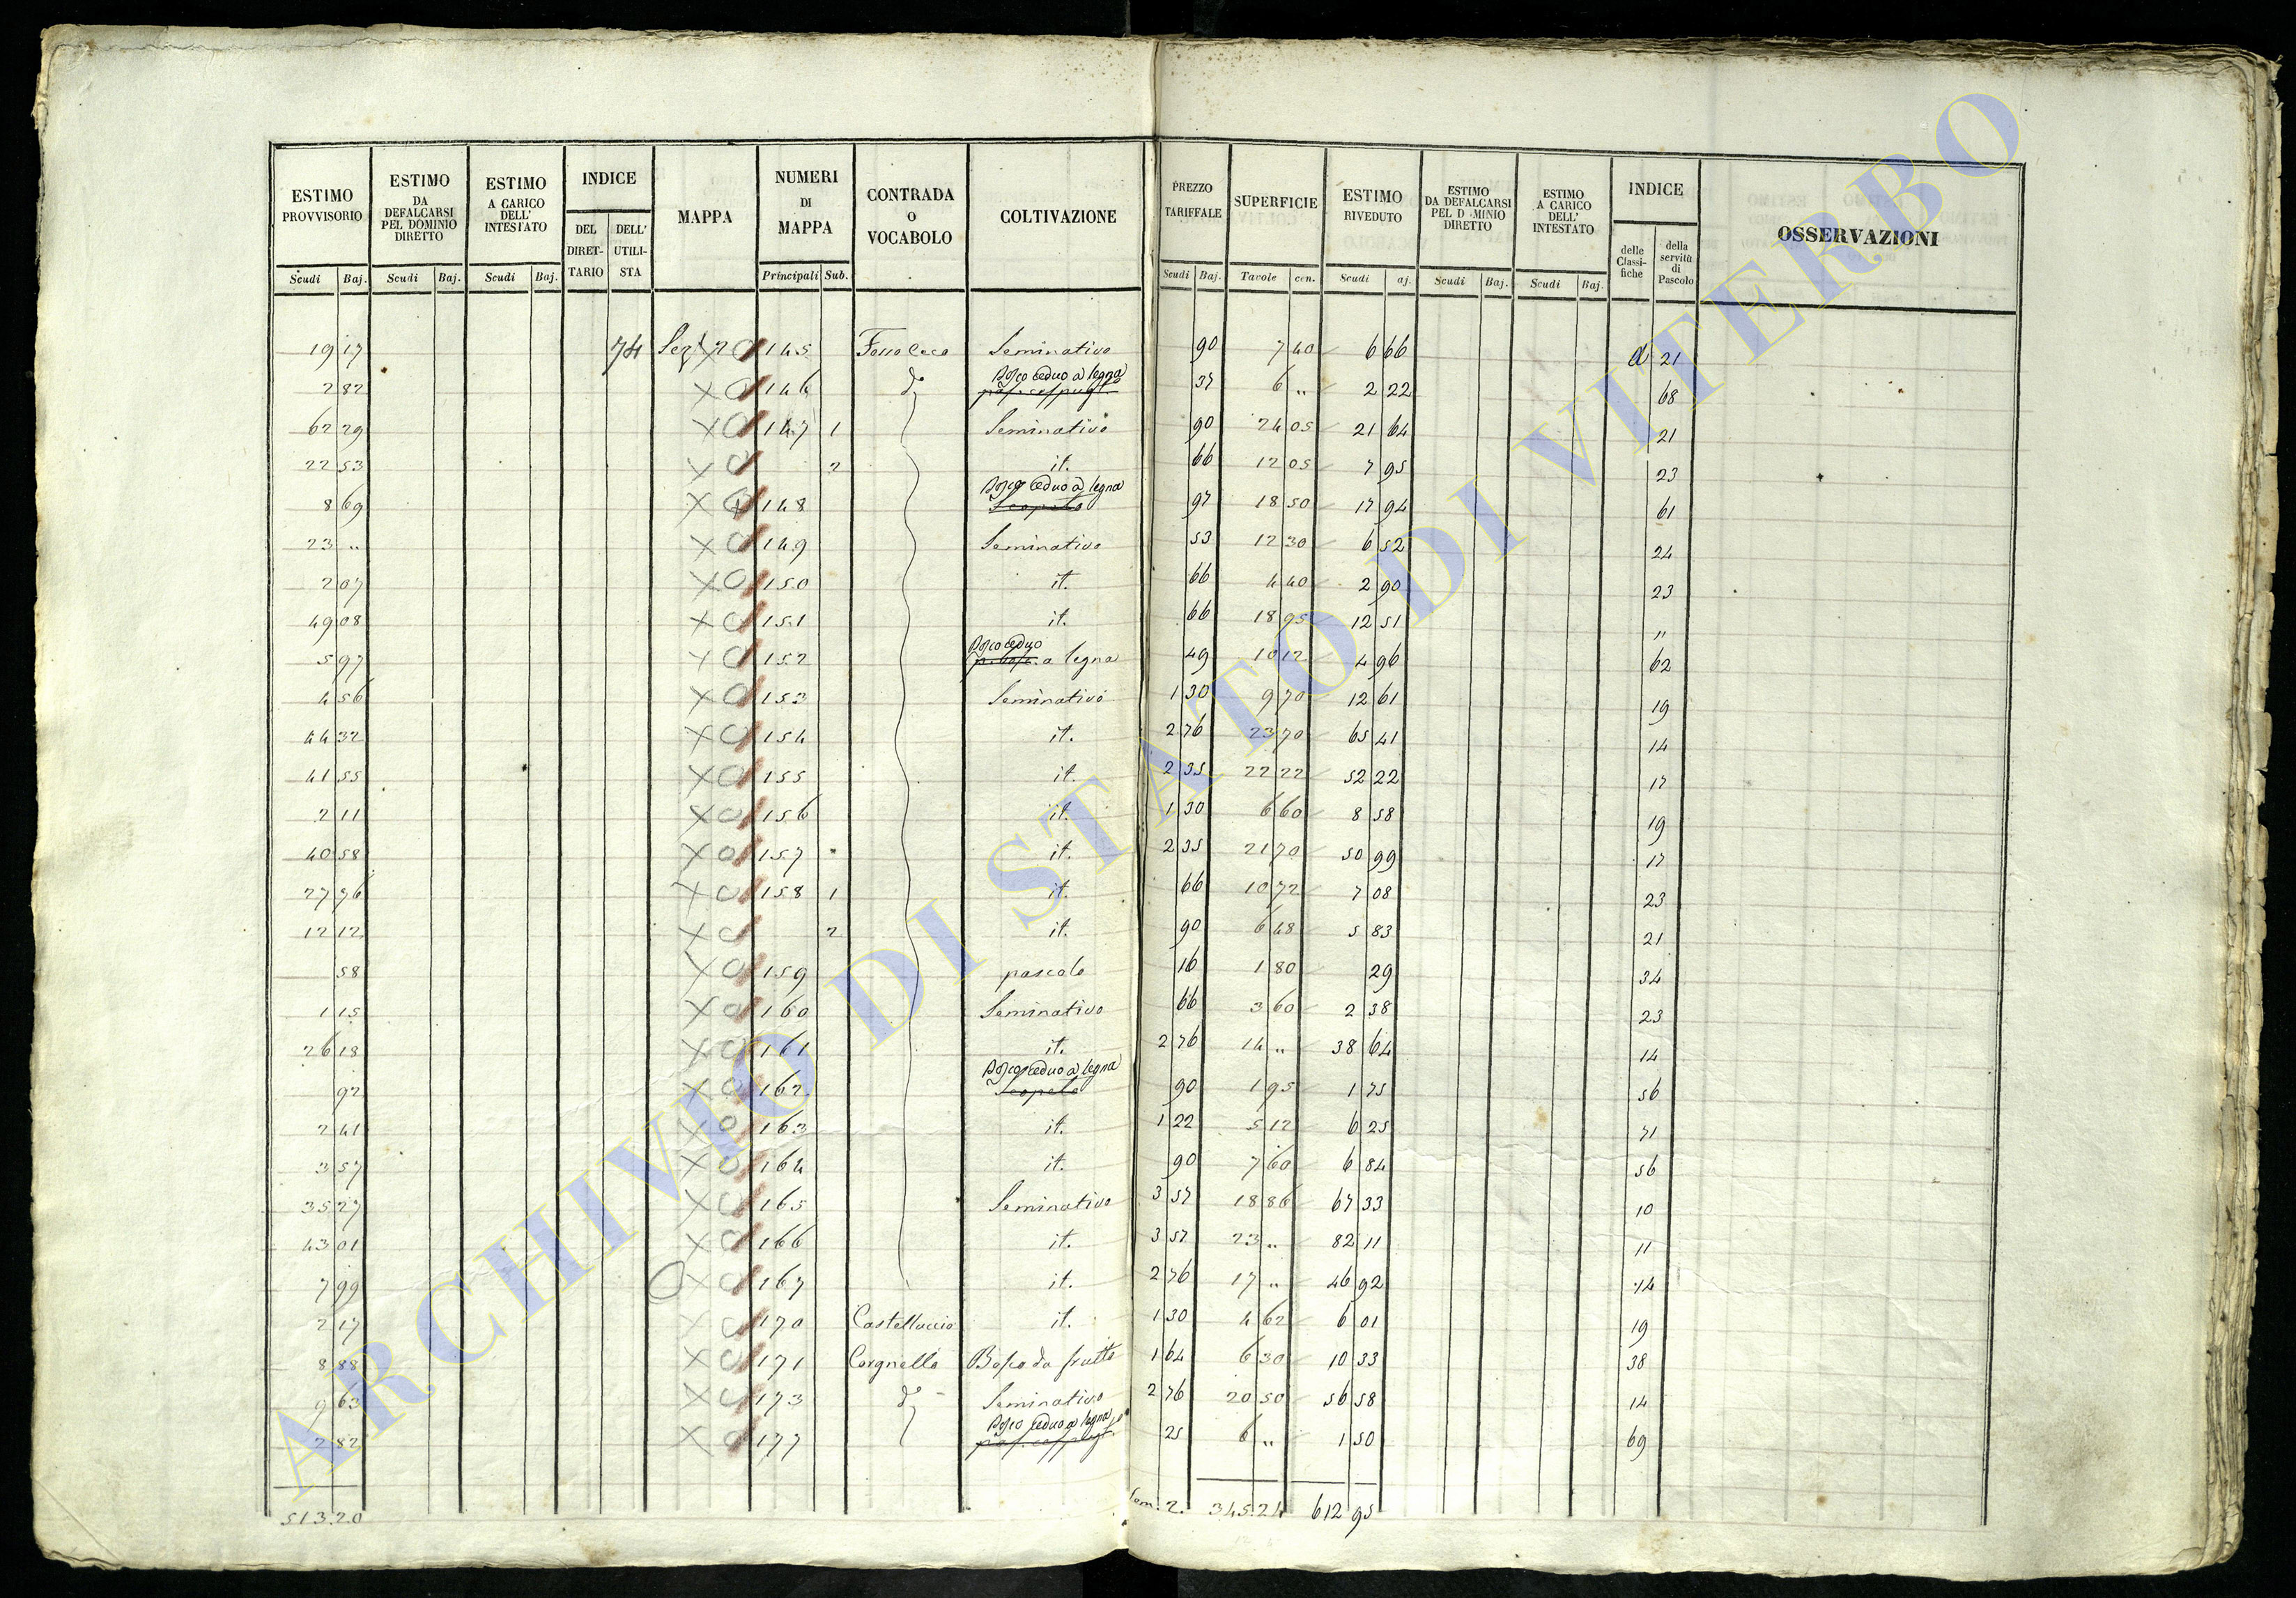 ESTIMO PROVVISORIO Scudi Baj. ESTIMO DA DEFALCARSI PEL DOMINIO DIRETTO Scudi Baj. ESTIMO A CARICO DELL' INTESTATO Scudi Baj. INDICE DEL DIRETTARIO DELL' UTILISTA MAPPA NUMERI DI MAPPA Principali Sub. CONTRADA O VOCABOLO COLTIVAZIONE PREZZO TARIFFALE Scudi Baj. SUPERFICIE Tavole cen. ESTIMO RIVEDUTO Scudi aj. ESTIMO DA DEFALCARSI PEL D MINIO DIRETTO Scudi Baj. ESTIMO A CARICO DELL' INTESTATO Scudi Baj. INDICE delle Classifiche della servitù di Pascolo OSSERVAZIONI
19 17 74 145 Seminativo 90 7 40 6 66 d 21
2 82 146 do Bosco ceduo a legna 37 6 „ 2 22 68
62 29 147 1 Seminativo 90 24 05 21 64 21
22 53 2 it. 66 12 05 7 95 23
8 69 148 Bosco ceduo a legna Scopeto 97 18 50 17 94 61
23 „ 149 Seminativo 53 12 30 6 52 24
2 07 150 it. 66 4 40 2 90 23
49 08 151 it. 66 18 95 12 51 „
5 97 152 Bosco ceduo a legna 49 10 12 4 96 62
4 56 153 Seminativo 1 30 9 70 12 61 19
44 32 154 it. 2 76 23 70 65 41 14
41 55 155 it. 2 35 22 22 52 22 17
2 11 156 it. 1 30 6 60 8 58 19
40 58 157 it. 2 35 21 70 50 99 17
27 76 158 1 it. 66 10 72 7 08 23
12 12 2 it. 90 6 48 5 83 21
58 159 pascolo 16 1 80 29 34
1 15 160 Seminativo 66 3 60 2 38 23
26 18 161 it. 2 76 14 „ 38 64 14
92 162 Bosco ceduo a legna Scopeto 90 1 95 1 75 56
2 41 163 it. 1 22 5 12 6 25 71
3 57 164 it. 90 7 60 6 84 56
35 27 165 Seminativo 3 57 18 86 67 33 10
43 01 166 it. 3 57 23 „ 82 11 11
7 99 167 it. 2 76 17 „ 46 92 14
2 17 170 Castelluccio it. 1 30 4 62 6 01 19
8 88 171 Corgnella Bosco da frutto 1 64 6 30 10 33 38
9 63 173 do Seminativo 2 76 20 50 56 58 14
2 82 177 Bosco ceduo a legna 25 6 „ 1 50 69
513.20 345.24 612 95
ARCHIVIO DI STATO DI VITERBO